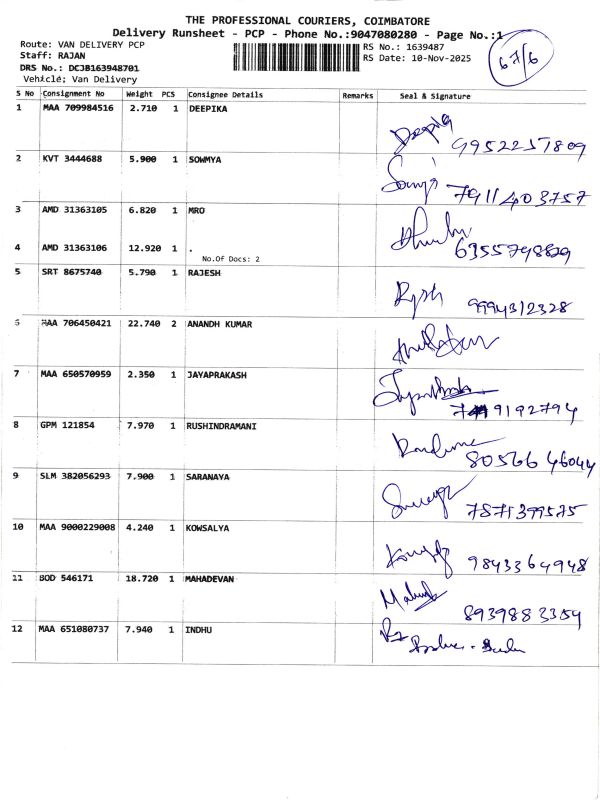 THE PROFESSIONAL COURIERS, COIMBATORE
Delivery Runsheet - PCP - Phone No.:9047080280 - Page No.:1
Route: VAN DELIVERY PCP
Staff: RAJAN
DRS No.: DCJB163948701
Vehicle: Van Delivery
RS No.: 1639487
RS Date: 10-Nov-2025
67/6
S No Consignment No Weight PCS Consignee Details Remarks Seal & Signature
1 MAA 709984516 2.710 1 DEEPIKA
Deepika 9952257809
2 KVT 3444688 5.900 1 SOWMYA
7911403757
3 AMD 31363105 6.820 1 MRO
4 AMD 31363106 12.920 1 .
No.Of Docs: 2
5 SRT 8675740 5.790 1 RAJESH
9994312328
6 MAA 706450421 22.740 2 ANANDH KUMAR
7 MAA 650570959 2.350 1 JAYAPRAKASH
8 GPM 121854 7.970 1 RUSHINDRAMANI
80566 46044
9 SLM 382056293 7.900 1 SARANAYA
7871399575
10 MAA 9000229008 4.240 1 KOWSALYA
9843364948
11 BOD 546171 18.720 1 MAHADEVAN
8939883354
12 MAA 651080737 7.940 1 INDHU